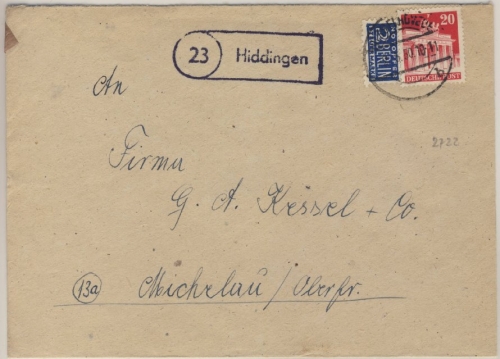 23 Hiddingen
2 BERLIN
20
DEUTSCHE POST
An
2722
Firma
G. A. Kessel + Co.
13a Michelau / Oberfr.